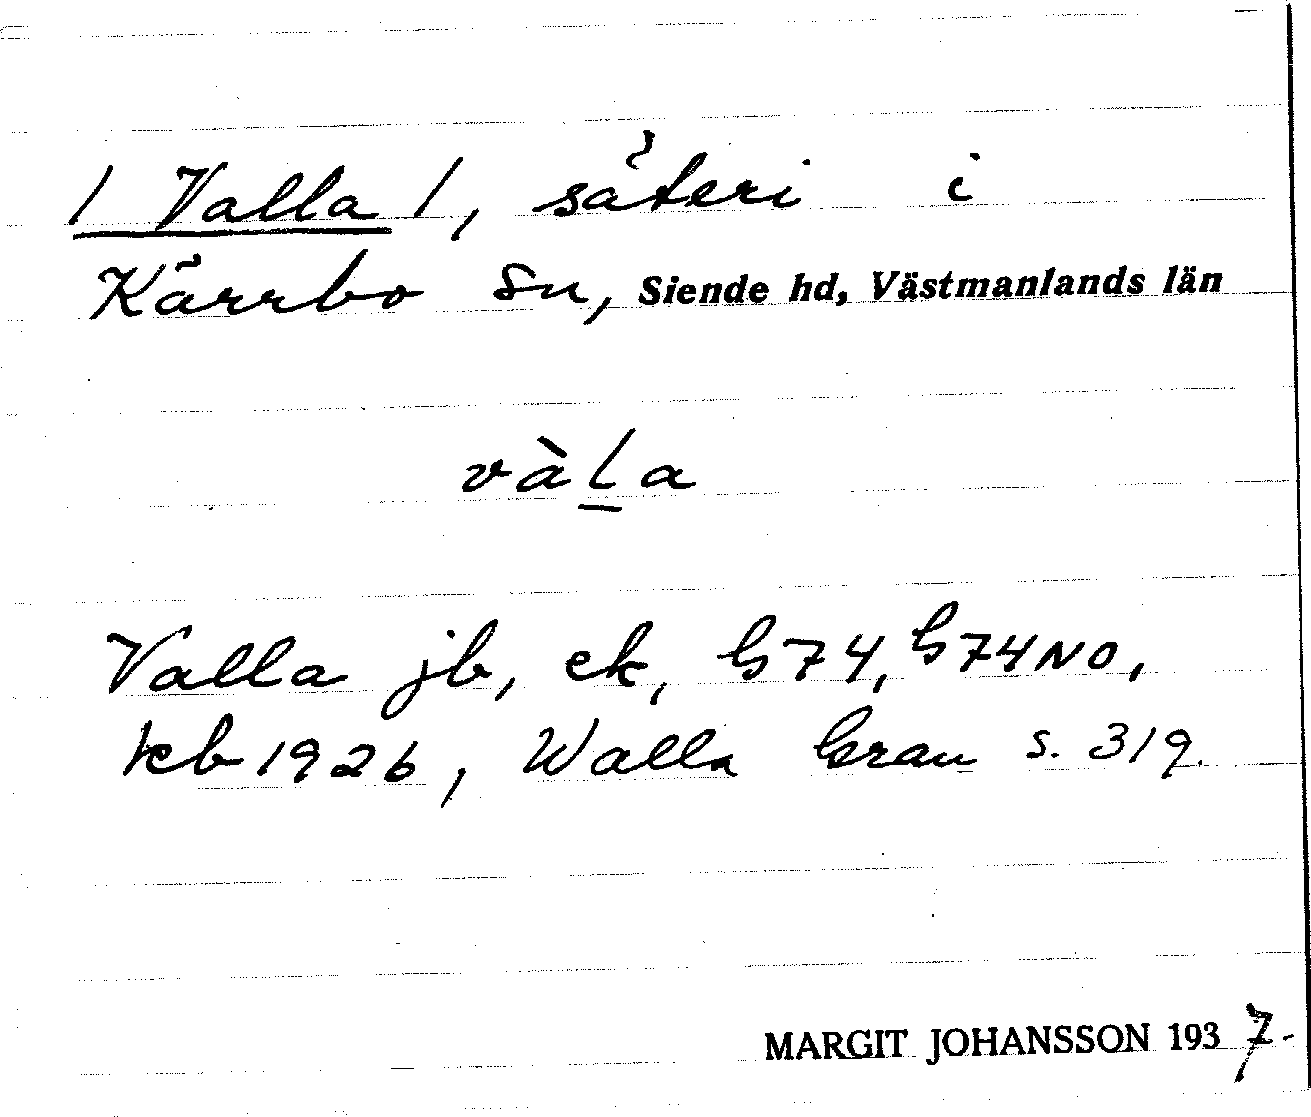 / Valla /, säteri i
Kärrbo sn, Siende hd, Västmanlands län
vàḻa
Valla jb, ek, G74, G74NO,
kb 1926, Walla Grau s. 319.
MARGIT JOHANSSON 1937.-